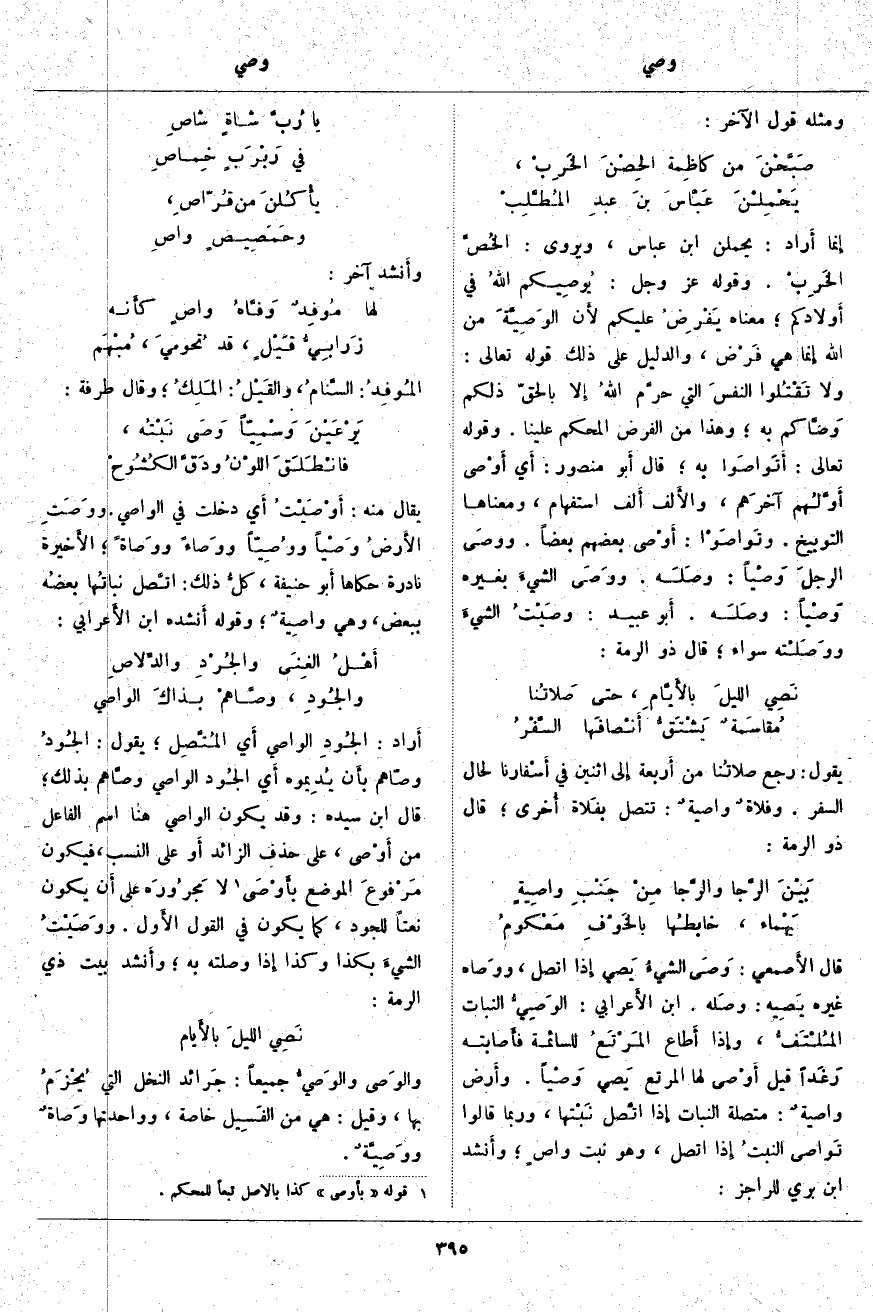 وصي
وصي
ومثله قول الآخر :
صَبَّحْنَ من كاظِمةَ الحِصْنَ الخَرِبْ ،
يَحْمِلْنَ عَبَّاسَ بنَ عبدِ المُطَّلِبْ
إنما أراد : يحملن ابن عباس ، ويروى : الخُصَّ
الخَرِبْ . وقوله عز وجل : يُوصِيكم اللهُ في
أولادكم ؛ معناه يَفْرِضُ عليكم لأن الوَصِيَّةَ من
الله إنما هي فَرْض ، والدليل على ذلك قوله تعالى :
ولا تَقْتُلوا النفسَ التي حرَّم اللهُ إلا بالحقّ ذلكم
وَصَّاكم به ؛ وهذا من الفرض المحكم علينا . وقوله
تعالى : أَتَواصَوْا به ؛ قال أبو منصور : أي أَوْصى
أَوَّلُهم آخرَهم ، والألف ألف استفهام ، ومعناها
التوبيخ . وتَواصَوْا : أوْصى بعضهم بعضاً . ووصَى
الرجلَ وَصْياً : وصَلَه . ووَصَى الشيءَ بغيره
وَصْياً : وصَلَه . أبو عبيد : وصَيْتُ الشيءَ
ووَصَلْته سواء ؛ قال ذو الرمة :
نَصِي الليلَ بالأَيّامِ ، حتى صَلاتُنا
مُقاسَمةٌ يَشْتَقُّ أَنْصافَها السَّفْرُ
يقول : رجع صلاتُنا من أربعة إلى اثنين في أسْفارنا لحال
السفر . وفلاةٌ واصيةٌ : تتصل بفَلاة أُخرى ؛ قال
ذو الرمة :
بَيْنَ الرَّجا والرَّجا مِنْ جَنْبِ واصِيةٍ
يَهْماء ، خابطُها بالخَوْفِ مَعْكومُ
قال الأصمعي : وَصَى الشيءُ يَصي إذا اتصل ، ووَصاه
غيره يَصِيه : وصَله . ابن الأعرابي : الوَصِيُّ النبات
المُلْتَفُّ ، وإذا أطاع المَرْتَعُ للسائمة فأصابته
رَغَداً قيل أَوْصى لها المرتع يَصي وَصْياً . وأرض
واصيةٌ : متصلة النبات إذا اتَّصل نَبْتها ، وربما قالوا
تَواصى النبتُ إذا اتصل ، وهو نبت واصٍ ؛ وأنشد
ابن بري للراجز :
يا رُبَّ شاةٍ شاصِ
في رَبْرَبٍ خِماصِ
يأْكُلْنَ من قُرّاصِ،
وحَمَصِيصٍ واصِ
وأنشد آخر :
لها مُوفِدٌ وَفّاهُ واصٍ كأَنه
زَرابِيُّ قَيْلٍ ، قد تُحومِيَ ، مُبْهَم
المُوفِدُ: السَّنامُ، والقَيْلُ: المَلِكُ؛ وقال طرفة :
يَرْعَيْنَ وَسْمِيّاً وَصَى نَبْتُه ،
فانْطَلَقَ اللوْنُ ودَقَّ الكُشُوحْ
يقال منه : أَوْصَيْتُ أي دخلت في الواصي . ووَصَتِ
الأرضُ وَصْياً ووُصِيّاً ووَصاءً ووَصاةً ؛ الأخيرة
نادرة حكاها أبو حنيفة ، كلُّ ذلك : اتَّصل نباتُها بعضُه
ببعض، وهي واصِيةٌ ؛ وقوله أنشده ابن الأعرابي :
أَهْلُ الغِنَى والجُرْدِ والدِّلاصِ
والجُودِ ، وصَّاهمْ بذاكَ الواصي
أراد : الجُودِ الواصي أي المُتَّصِل ؛ يقول : الجُودُ
وصّاهم بأن يُدِيموه أي الجُودُ الواصي وصّاهم بذلك؛
قال ابن سيده : وقد يكون الواصي هنا اسم الفاعل
من أَوْصى ، على حذف الزائد أو على النسب، فيكون
مَرْفوعَ الموضع بأَوْصَى١ لا مَجرُورَه على أن يكون
نعتاً للجود ، كما يكون في القول الأول . ووَصَيْتُ
الشيءَ بكذا وكذا إذا وصلته به ؛ وأنشد بيت ذي
الرمة :
نَصِي الليلَ بالأيام
والوَصى والوَصيُّ جميعاً : جَرائد النخل التي يُحْزَمُ
بها ، وقيل : هي من الفَسِيل خاصة ، وواحدتها وَصاةٌ
ووَصِيَّةٌ .
١ قوله « بأوصى » كذا بالاصل تبعاً للمحكم .
٣٩٥